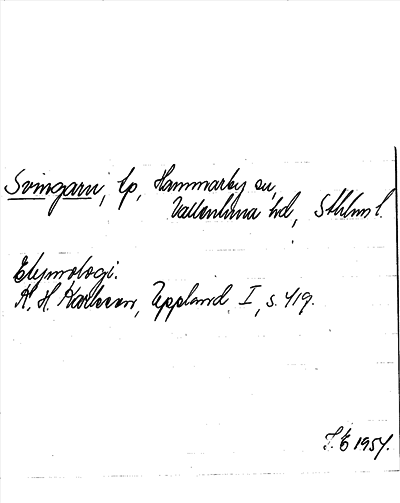 Svingarn, lp, Hammarby sn,
Vallentuna hd, Sthlms l.
Etymologi.
K. H. Karlsson, Uppland I, s. 419.
T. E 1954.